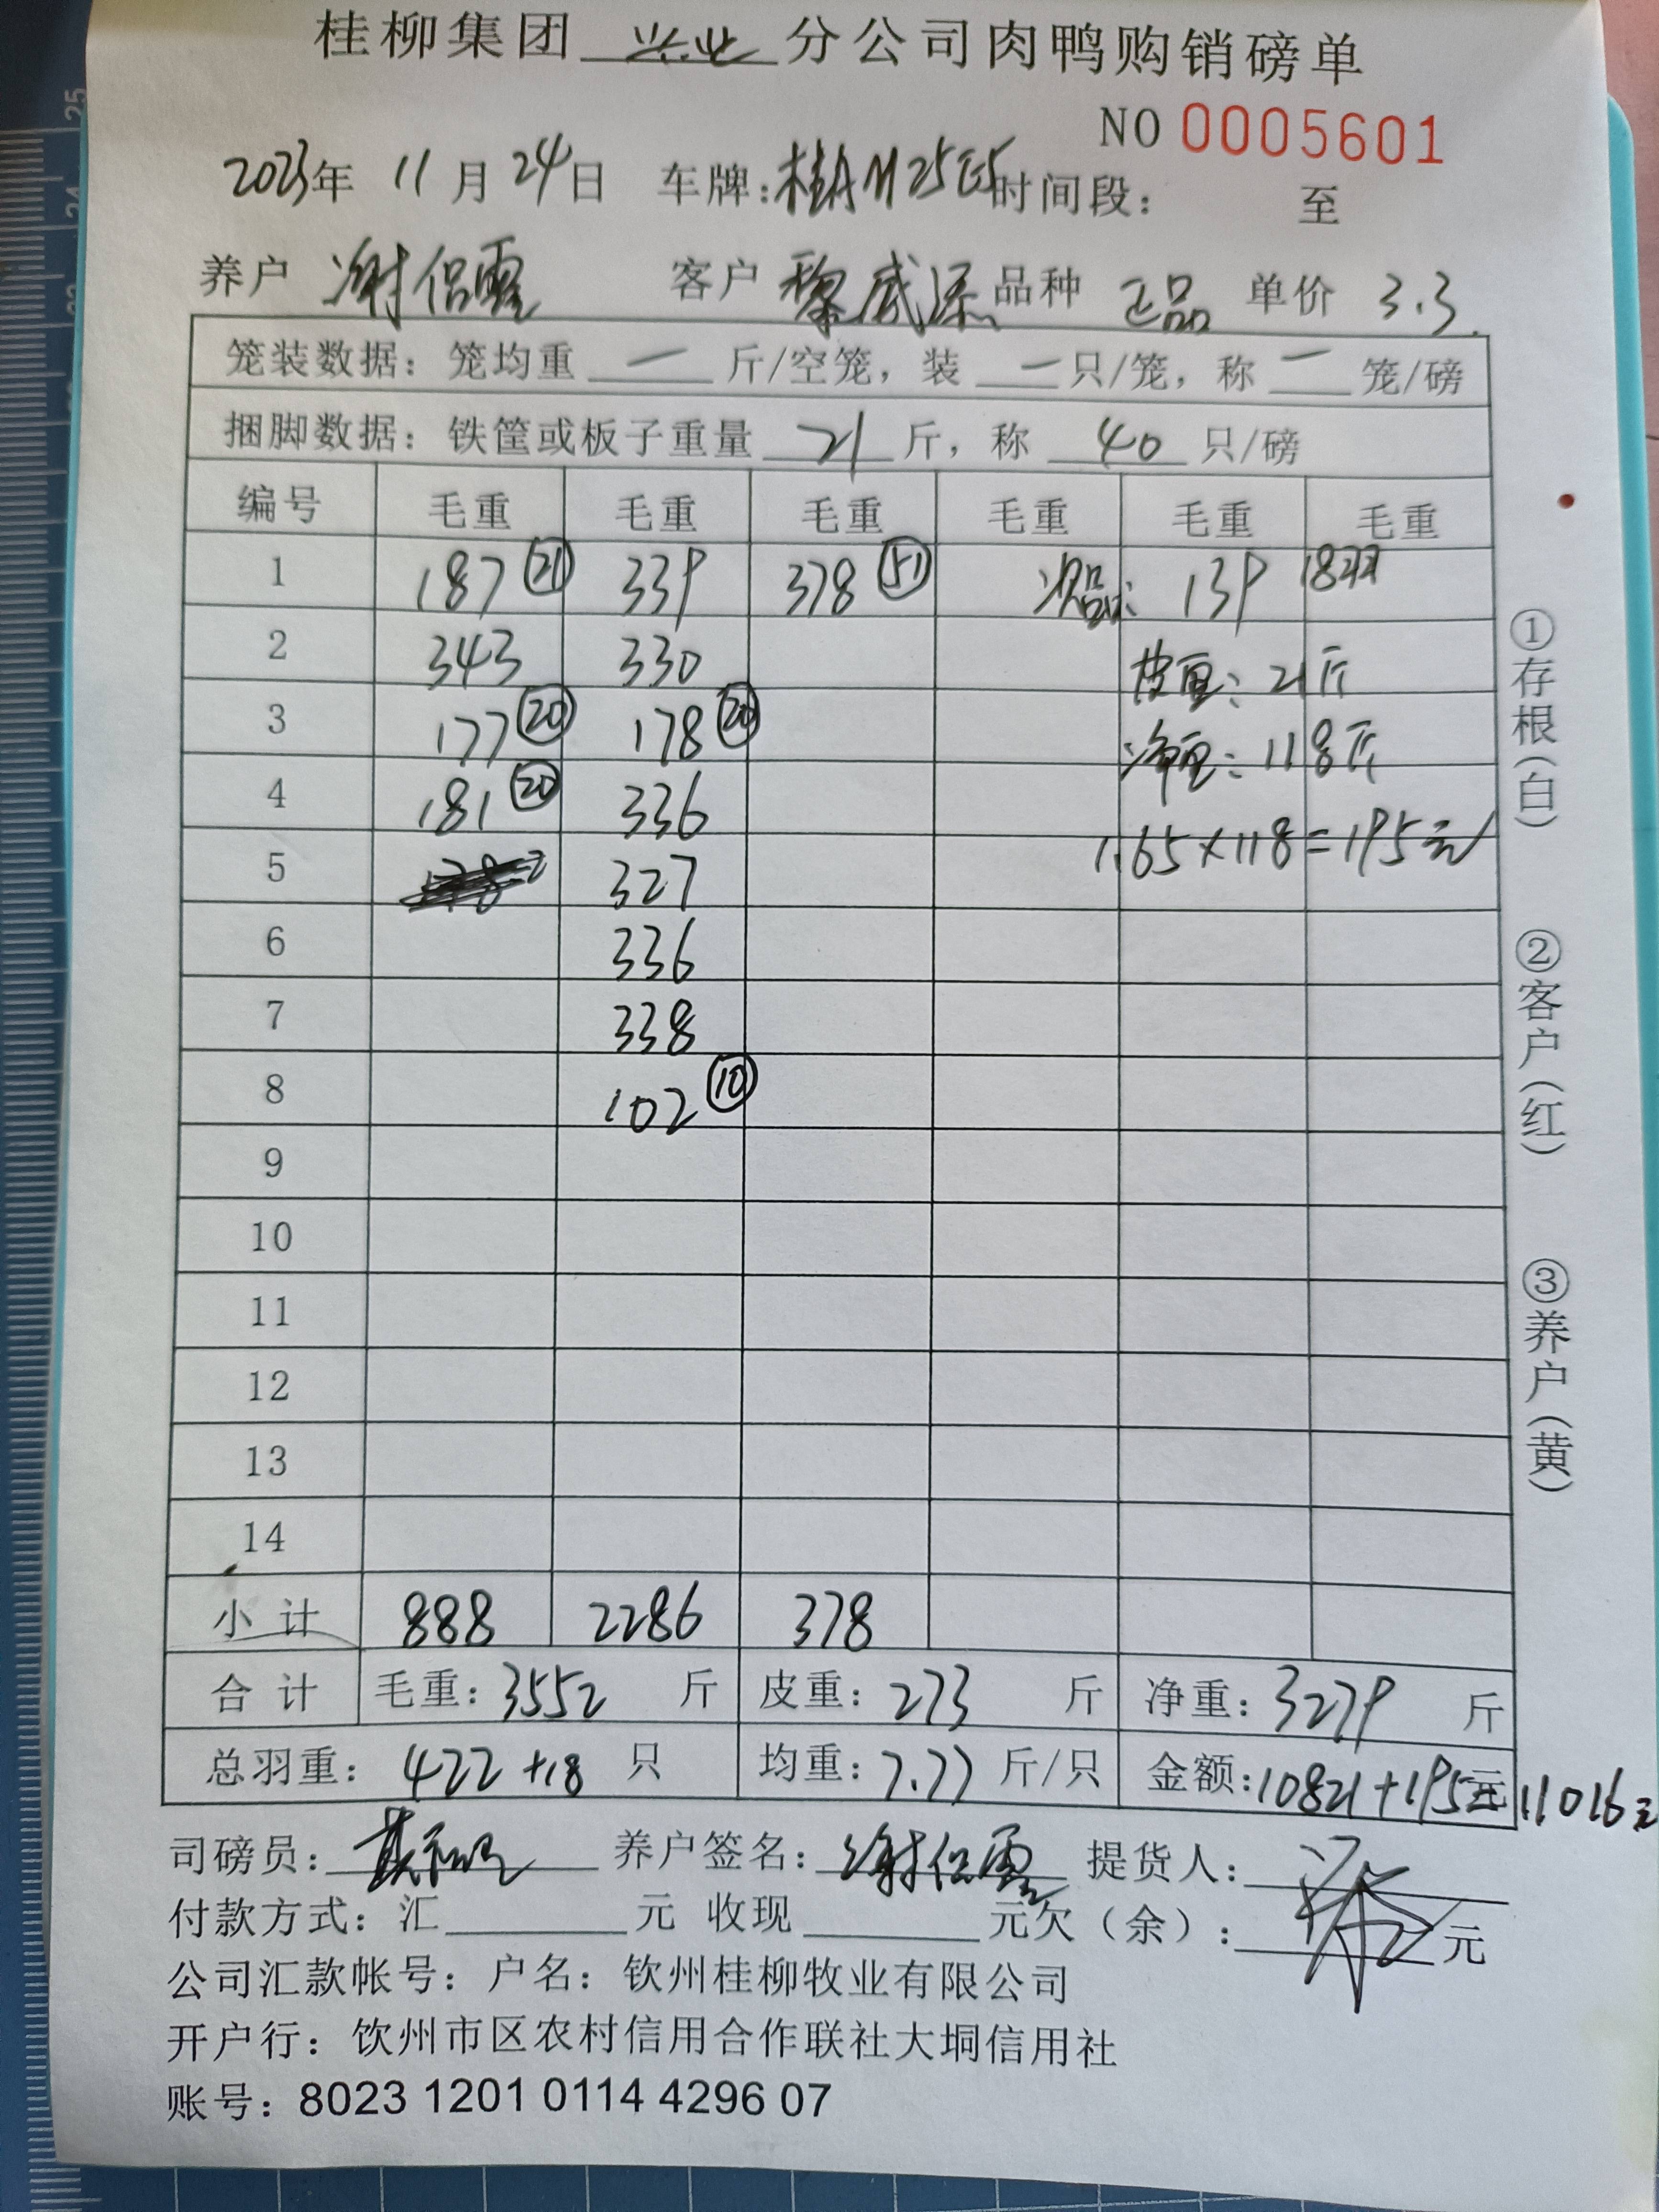 桂柳集团 兴业 分公司肉鸭购销磅单
NO 0005601
2023年 11月 24日 车牌:桂AM25E5 时间段: 至
养户 谢侣霞 客户 黎威添 品种 正品 单价 3.3
笼装数据: 笼均重 一 斤/空笼, 装 一 只/笼, 称 一 笼/磅
捆脚数据: 铁筐或板子重量 21 斤, 称 40 只/磅
编号 毛重 毛重 毛重 毛重 毛重 毛重
1 187 21 339 378 51 次品: 139 18羽
2 343 330 皮重: 21斤
3 177 20 178 20 净重: 118斤
4 181 20 336 1.65×118=195元
5 327
6 336
7 338
8 102 10
9
10
11
12
13
14
小计 888 2286 378
合计 毛重: 3552 斤 皮重: 273 斤 净重: 3279 斤
总羽重: 422+18 只 均重: 7.77 斤/只 金额: 10821+195元 11016元
司磅员: 养户签名: 谢侣霞 提货人:
付款方式: 汇 元 收现 元欠(余): 元
公司汇款帐号: 户名: 钦州桂柳牧业有限公司
开户行: 钦州市区农村信用合作联社大垌信用社
账号: 8023 1201 0114 4296 07
①存根(白)
②客户(红)
③养户(黄)
25
24